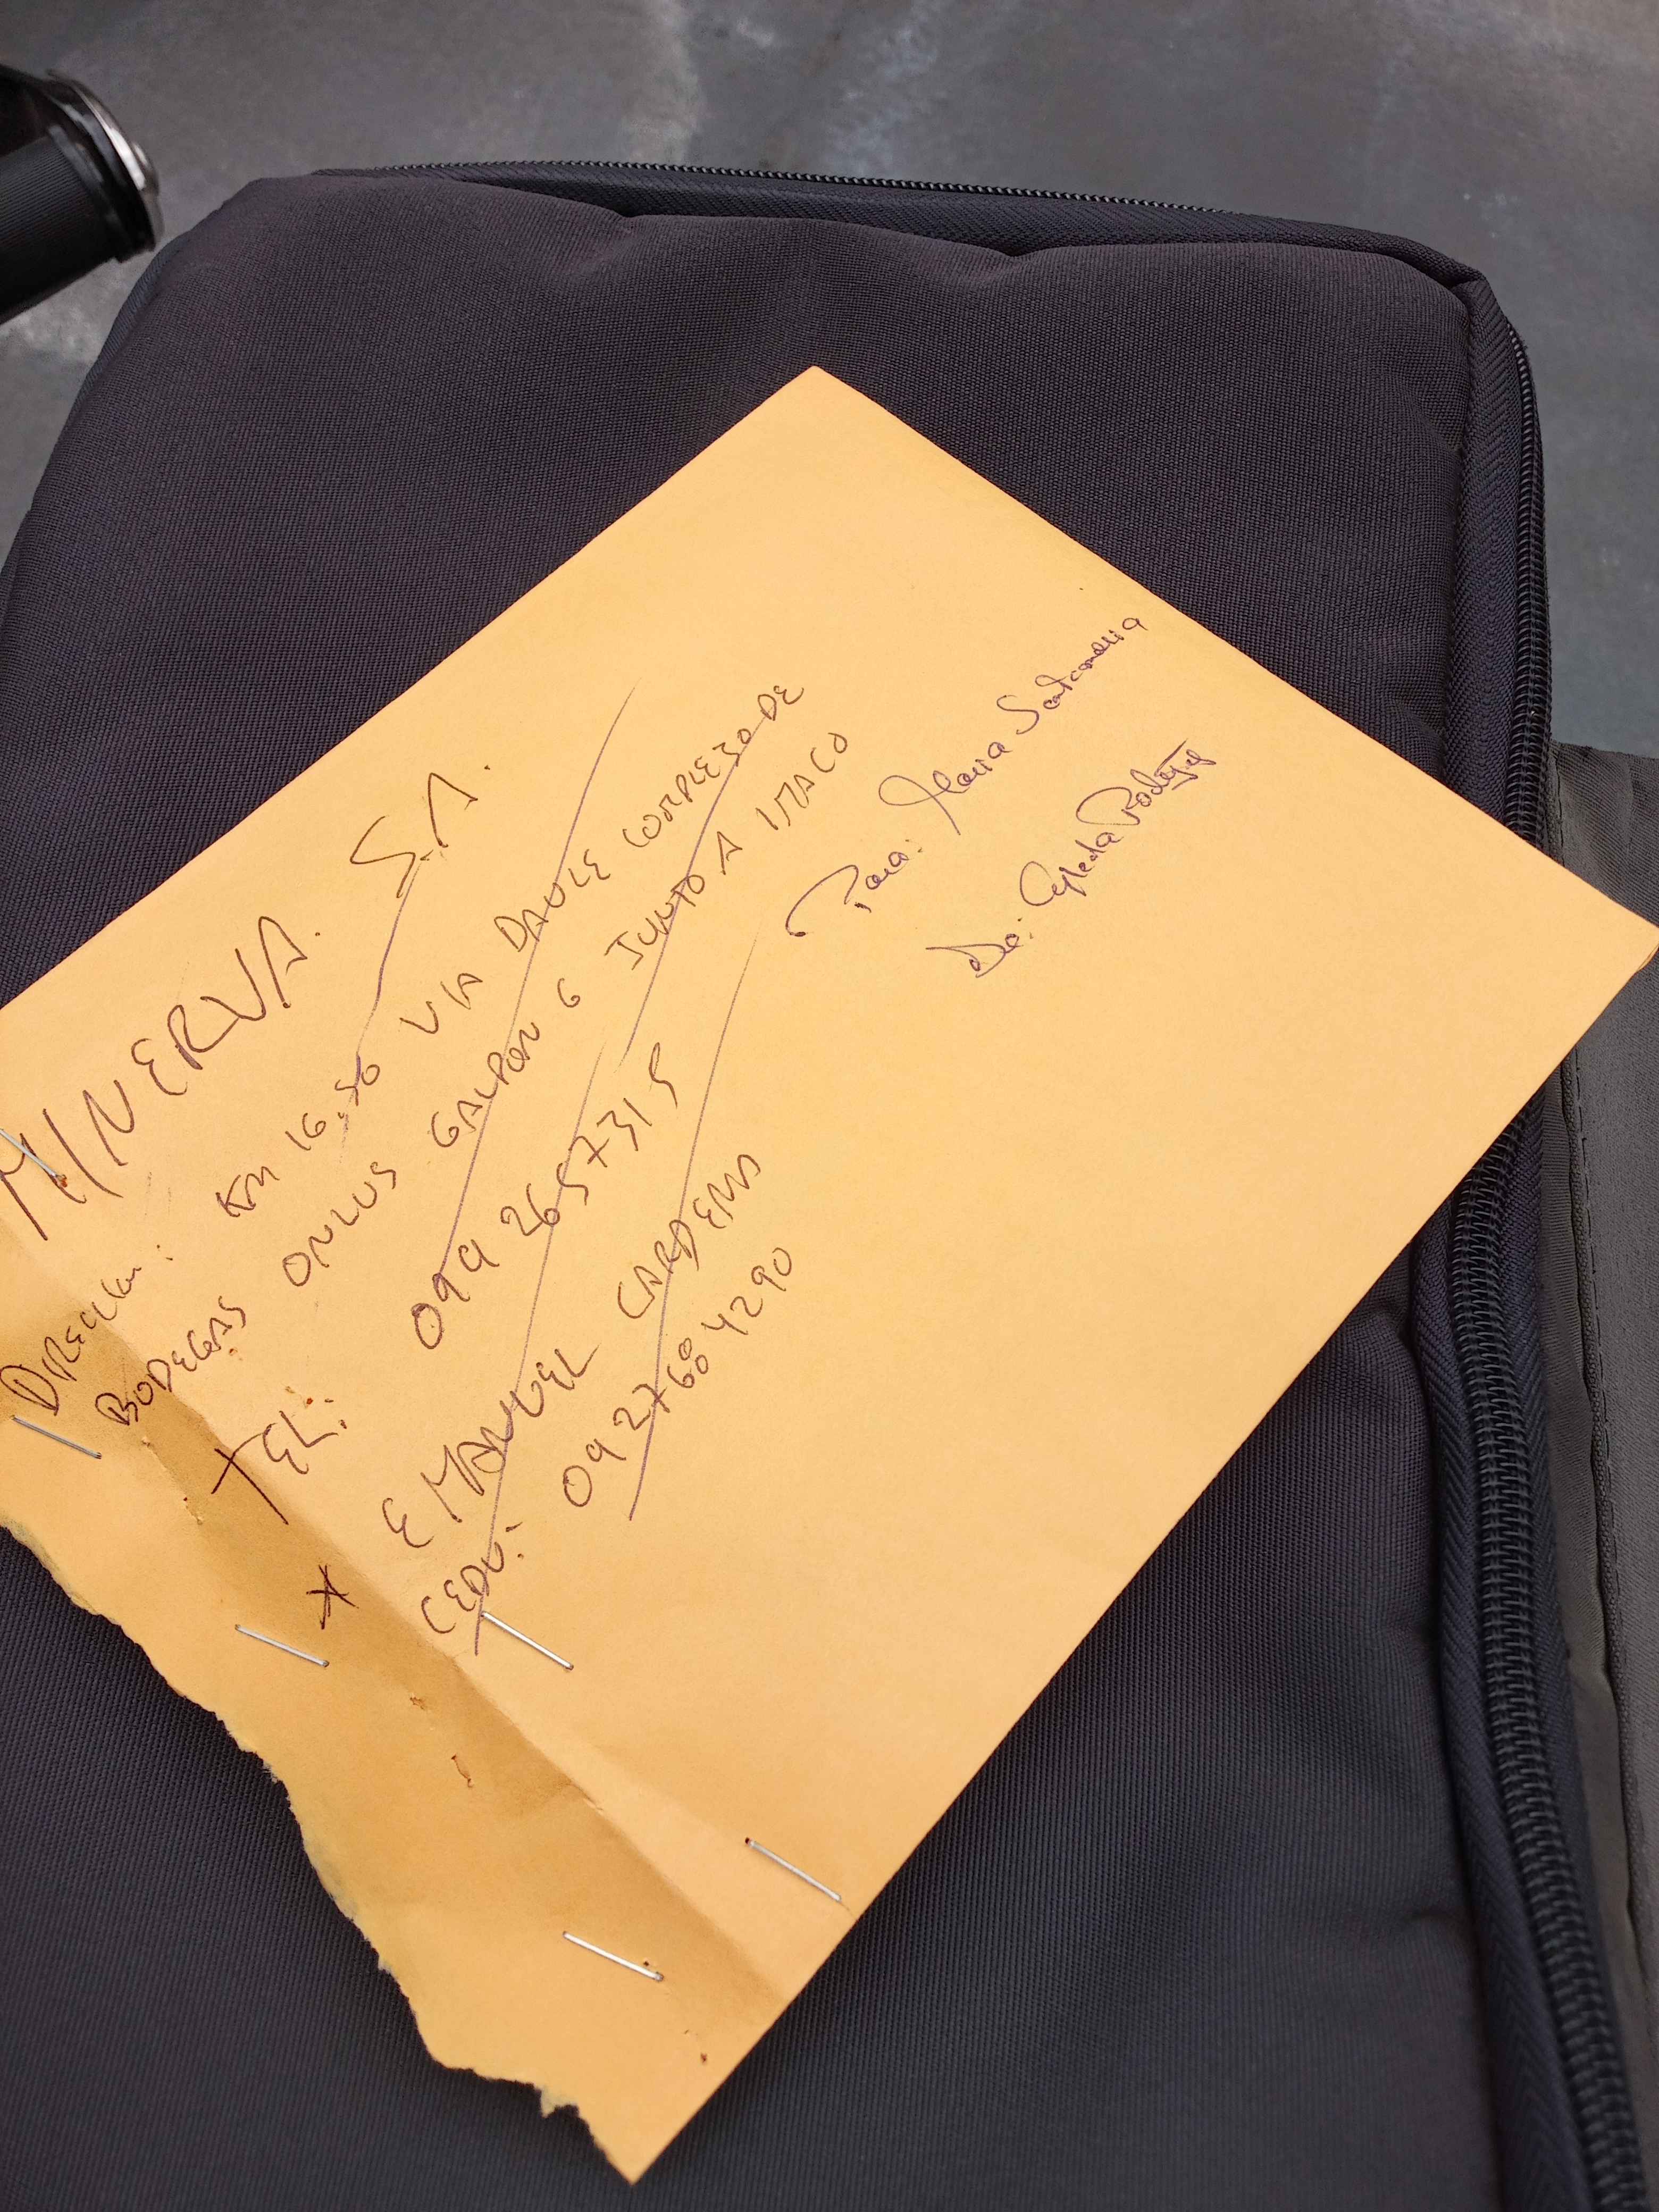 MINERVA. S.A.
Dirección: Km 16.50 VIA DAULE COMPLEJO DE
BODEGAS ONLUS GALPON 6 JUNTO A IMACO
TEL: 0992657315
* EMANUEL CARDENAS
CEDU: 0927684290
Para: Maria Santamaria
De: